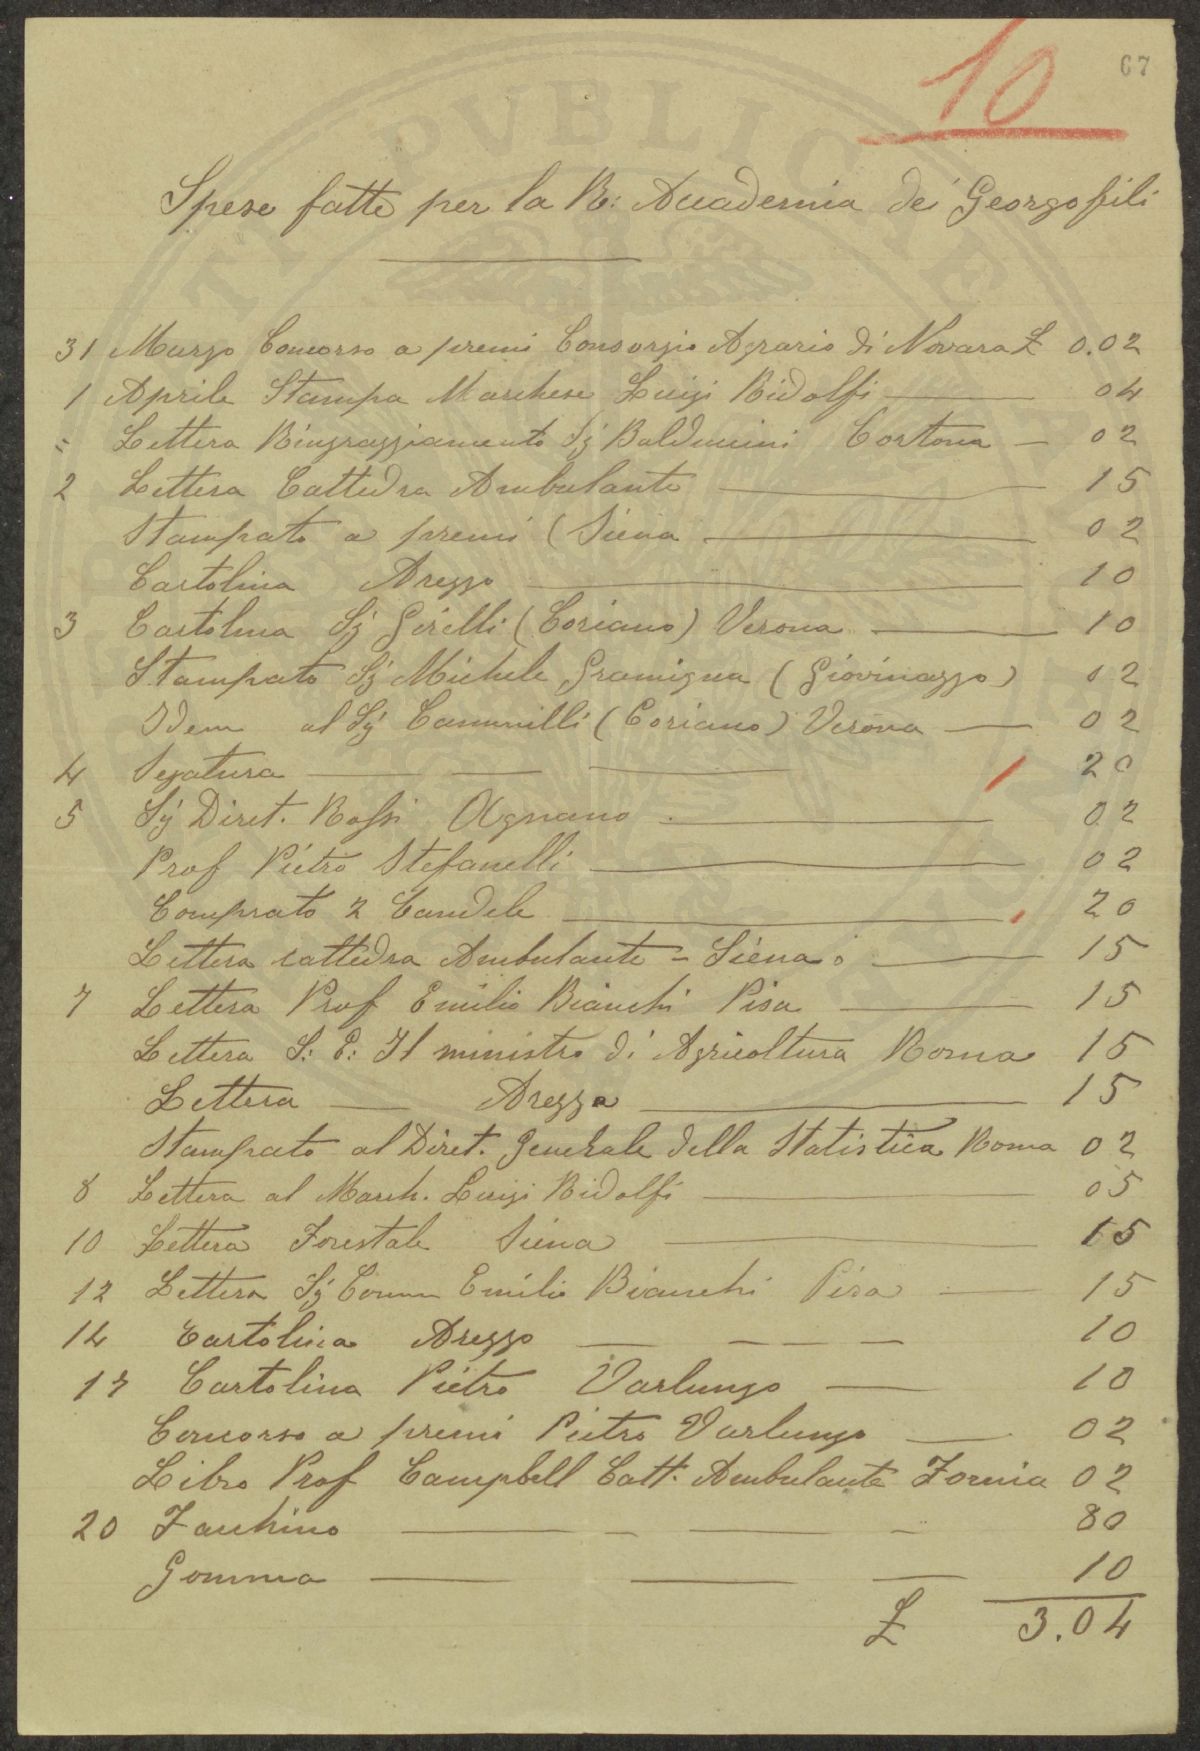 10
67
Spese fatte per la R: Accademia dei Georgofili
31 Marzo Concorso a premi Consorzio Agrario di Novara £ 0.02
1 Aprile Stampa Marchese Luigi Ridolfi 04
" Lettera Ringraziamento Sig Balducini Cortona 02
2 Lettera Cattedra Ambulante 15
Stampato a premi (Siena 02
Cartolina Arezzo 10
3 Cartolina Sig Girelli (Coriano) Verona 10
Stampato Sig Michele Gramigna (Giovinazzo) 02
Idem al Sig Cammilli (Coriano) Verona 02
4 Segatura 20
5 Sig Diret. Rossi Agnano 02
Prof Pietro Stefanelli 02
Comprato 2 Candele 20
Lettera cattedra Ambulante = Siena 15
7 Lettera Prof Emilio Bianchi Pisa 15
Lettera S: E: Il ministro di Agricoltura Roma 15
Lettera Arezzo 15
Stampato al Diret. Generale della Statistica Roma 02
8 Lettera al March. Luigi Ridolfi 05
10 Lettera Forestale Siena 15
12 Lettera Sig Comm Emilio Bianchi Pisa 15
14 Cartolina Arezzo 10
17 Cartolina Pietro Varlungo 10
Concorso a premi Pietro Varlungo 02
Libro Prof Campbell Catt. Ambulante Formia 02
20 Facchino 80
Gomma 10
£ 3.04